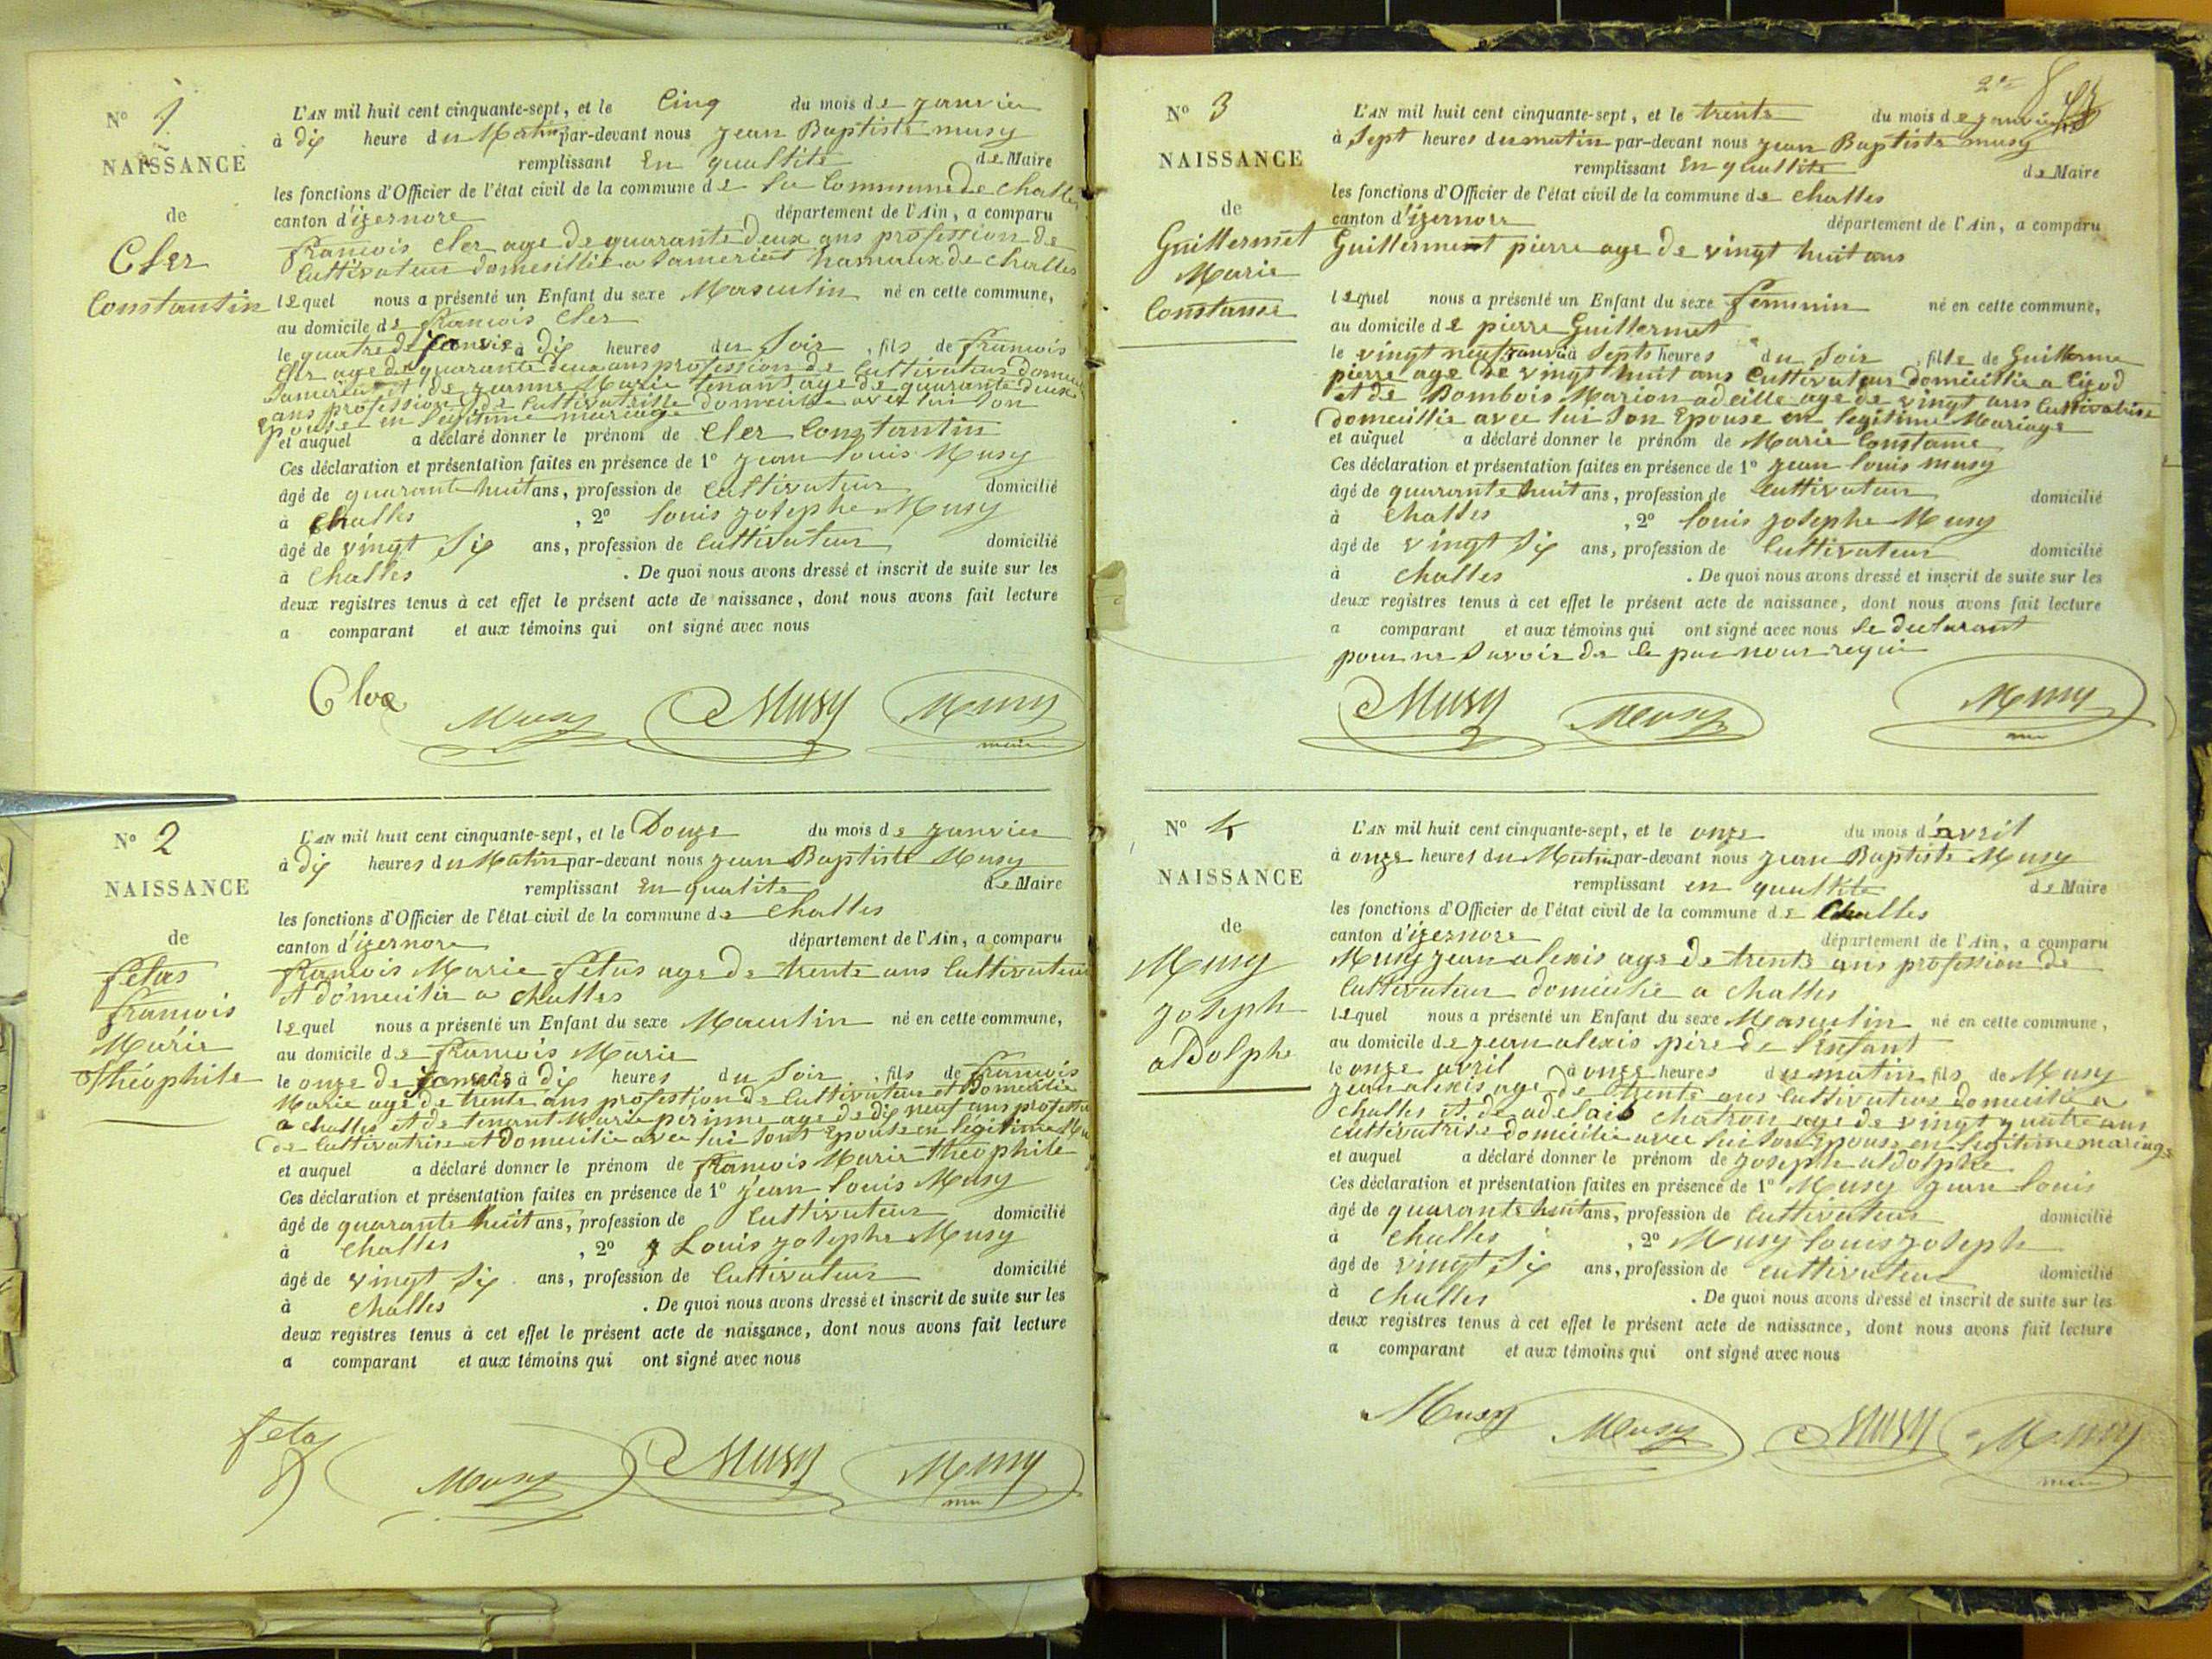 N° 1
NAISSANCE
de
Cler
Constantin
L'AN mil huit cent cinquante-sept, et le Cinq du mois de janvier
à dix heure du Matin par-devant nous jean Baptiste musy
remplissant En quallité de Maire
les fonctions d'Officier de l'état civil de la commune de la Commune de challes
canton d'izernore département de l'Ain, a comparu
francois Cler age de quarante deux ans profession de
Cultivateur domesillié a hamaux de challes
lequel nous a présenté un Enfant du sexe Masculin né en cette commune,
au domicile de francois Cler
le quatre de janvier à dix heures du Soir, fils de francois
Cler age de quarante deux ans profession de Cultivateur
et de jeanne Marie tenant age de quarante deux
ans profession de Cultivatrisse domicilie avec lui son
Epouse en legitime mariage
et auquel a déclaré donner le prénom de Cler Constantin
Ces déclaration et présentation faites en présence de 1° jean louis Musy
âgé de quarante huit ans, profession de Cultivateur domicilié
à challes, 2° louis josephe Musy
âgé de vingt six ans, profession de Cultivateur domicilié
à Challes. De quoi nous avons dressé et inscrit de suite sur les
deux registres tenus à cet effet le présent acte de naissance, dont nous avons fait lecture
a comparant et aux témoins qui ont signé avec nous
Musy Musy Musy
maire
N° 2
NAISSANCE
de
fétas
francois
Marie
théophile
L'AN mil huit cent cinquante-sept, et le Douze du mois de janvier
à dix heures du Matin par-devant nous jean Baptiste Musy
remplissant En qualité de Maire
les fonctions d'Officier de l'état civil de la commune de Challes
canton d'izernore département de l'Ain, a comparu
francois Marie fetas age de trente ans Cultivateur
et domicilie a challes
lequel nous a présenté un Enfant du sexe Maculin né en cette commune,
au domicile de francois Marie
le onze de janvier à dix heures du Soir, fils de francois
Marie age de trente ans profession de Cultivateur et Domicilie
a challes et de tenant Marie perinne age de dix neuf ans profession
de Cultivatrise et domicilie avec lui sont Epouse en legitime
et auquel a déclaré donner le prénom de francois Marie théophile
Ces déclaration et présentation faites en présence de 1° jean louis Musy
âgé de quarante huit ans, profession de Cultivateur domicilié
à challes, 2° Louis josephe Musy
âgé de vingt six ans, profession de Cultivateur domicilié
à challes. De quoi nous avons dressé et inscrit de suite sur les
deux registres tenus à cet effet le présent acte de naissance, dont nous avons fait lecture
a comparant et aux témoins qui ont signé avec nous
fetas Musy Musy Musy
N° 3
NAISSANCE
de
Guillermet
Marie
Constance
L'AN mil huit cent cinquante-sept, et le trente du mois de janvier
à Sept heures du matin par-devant nous jean Baptiste musy
remplissant En quallité de Maire
les fonctions d'Officier de l'état civil de la commune de challes
canton d'izernore département de l'Ain, a comparu
Guillerment pierre age de vingt huit ans
lequel nous a présenté un Enfant du sexe féminin né en cette commune,
au domicile de pierre Guillermet
le vingt neuf janvier à Septs heures du Soir, fille de Guillerme
pierre age de vingt huit ans Cultivateur domicillie a
et de Bombois Marion age de vingt ans Cultivatrise
domicillie avec lui son Epouse en legitime Mariage
et auquel a déclaré donner le prénom de Marie Constance
Ces déclaration et présentation faites en présence de 1° jean louis musy
âgé de quarante huit ans, profession de Cultivateur domicilié
à Challes, 2° louis josephe Musy
âgé de vingt six ans, profession de Cultivateur domicilié
à challes. De quoi nous avons dressé et inscrit de suite sur les
deux registres tenus à cet effet le présent acte de naissance, dont nous avons fait lecture
a comparant et aux témoins qui ont signé avec nous le declarant
pour ne savoir de le par nous requi
Musy Musy Musy
N° 4
NAISSANCE
de
Musy
joseph
aldolphe
L'AN mil huit cent cinquante-sept, et le onze du mois d'avril
à onze heures du Matin par-devant nous jean Baptiste Musy
remplissant en quallité de Maire
les fonctions d'Officier de l'état civil de la commune de Challes
canton d'izernore département de l'Ain, a comparu
Musy jean alexis age de trente ans profession de
Cultivateur domicilie a challes
lequel nous a présenté un Enfant du sexe Masculin né en cette commune,
au domicile de jean alexis père de l'Enfant
le onze avril à onze heures du matin fils de Musy
jean alexis age de trente ans Cultivateur domicilié a
challes et de adelaid chatron age de vingt quatre ans
cultivatrise domicilie avec lui son Epouse en legitime mariage
et auquel a déclaré donner le prénom de joseph aldolphe
Ces déclaration et présentation faites en présence de 1° Musy jean louis
âgé de quarante huit ans, profession de Cultivateur domicilié
à challes, 2° Musy louis joseph
âgé de vingt six ans, profession de cultivateur domicilié
à challes. De quoi nous avons dressé et inscrit de suite sur les
deux registres tenus à cet effet le présent acte de naissance, dont nous avons fait lecture
a comparant et aux témoins qui ont signé avec nous
Musy Musy Musy Musy